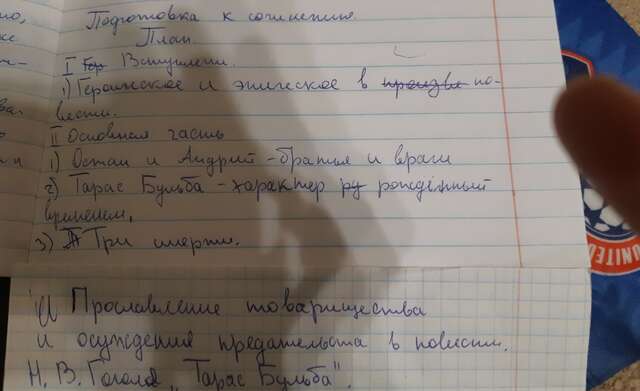 Подготовка к сочинению.
План.
I Вступлени.
1) Героическое и эпическое в по-
вести.
II Основная часть
1) Остап и Андрий - братья и враги
2) Тарас Бульба - характер рождённый
временем.
3) Три смерти.
Прославление товарищества
и осуждения предательства в повести.
Н. В. Гоголя "Тарас Бульба".
UNITED